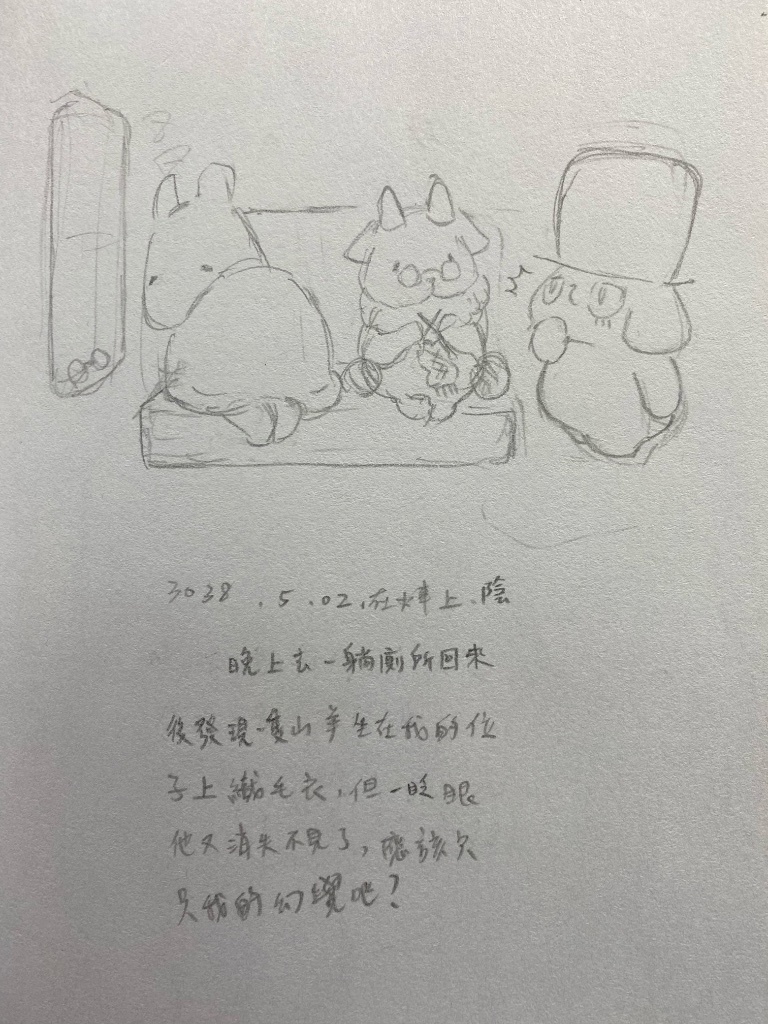 3038.5.02,在火車上,陰
晚上去一躺廁所回來
後發現一隻山羊坐在我的位
子上織毛衣,但一眨眼
他又消失不見了,應該
只我的幻覺吧?